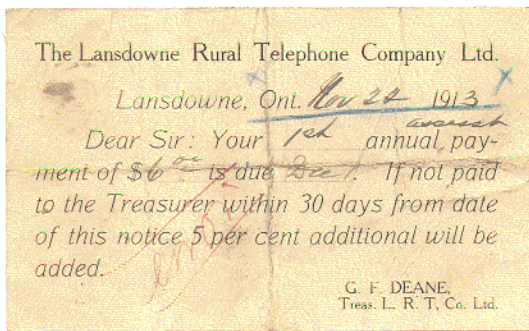 The Lansdowne Rural Telephone Company Ltd.
Lansdowne, Ont. Nov 22 1913
assesst
Dear Sir: Your 1st annual pay-
ment of $6 00 is due Dec 1. If not paid
to the Treasurer within 30 days from date
of this notice 5 per cent additional will be
added.
G. F. DEANE,
Treas. L. R. T, Co. Ltd.